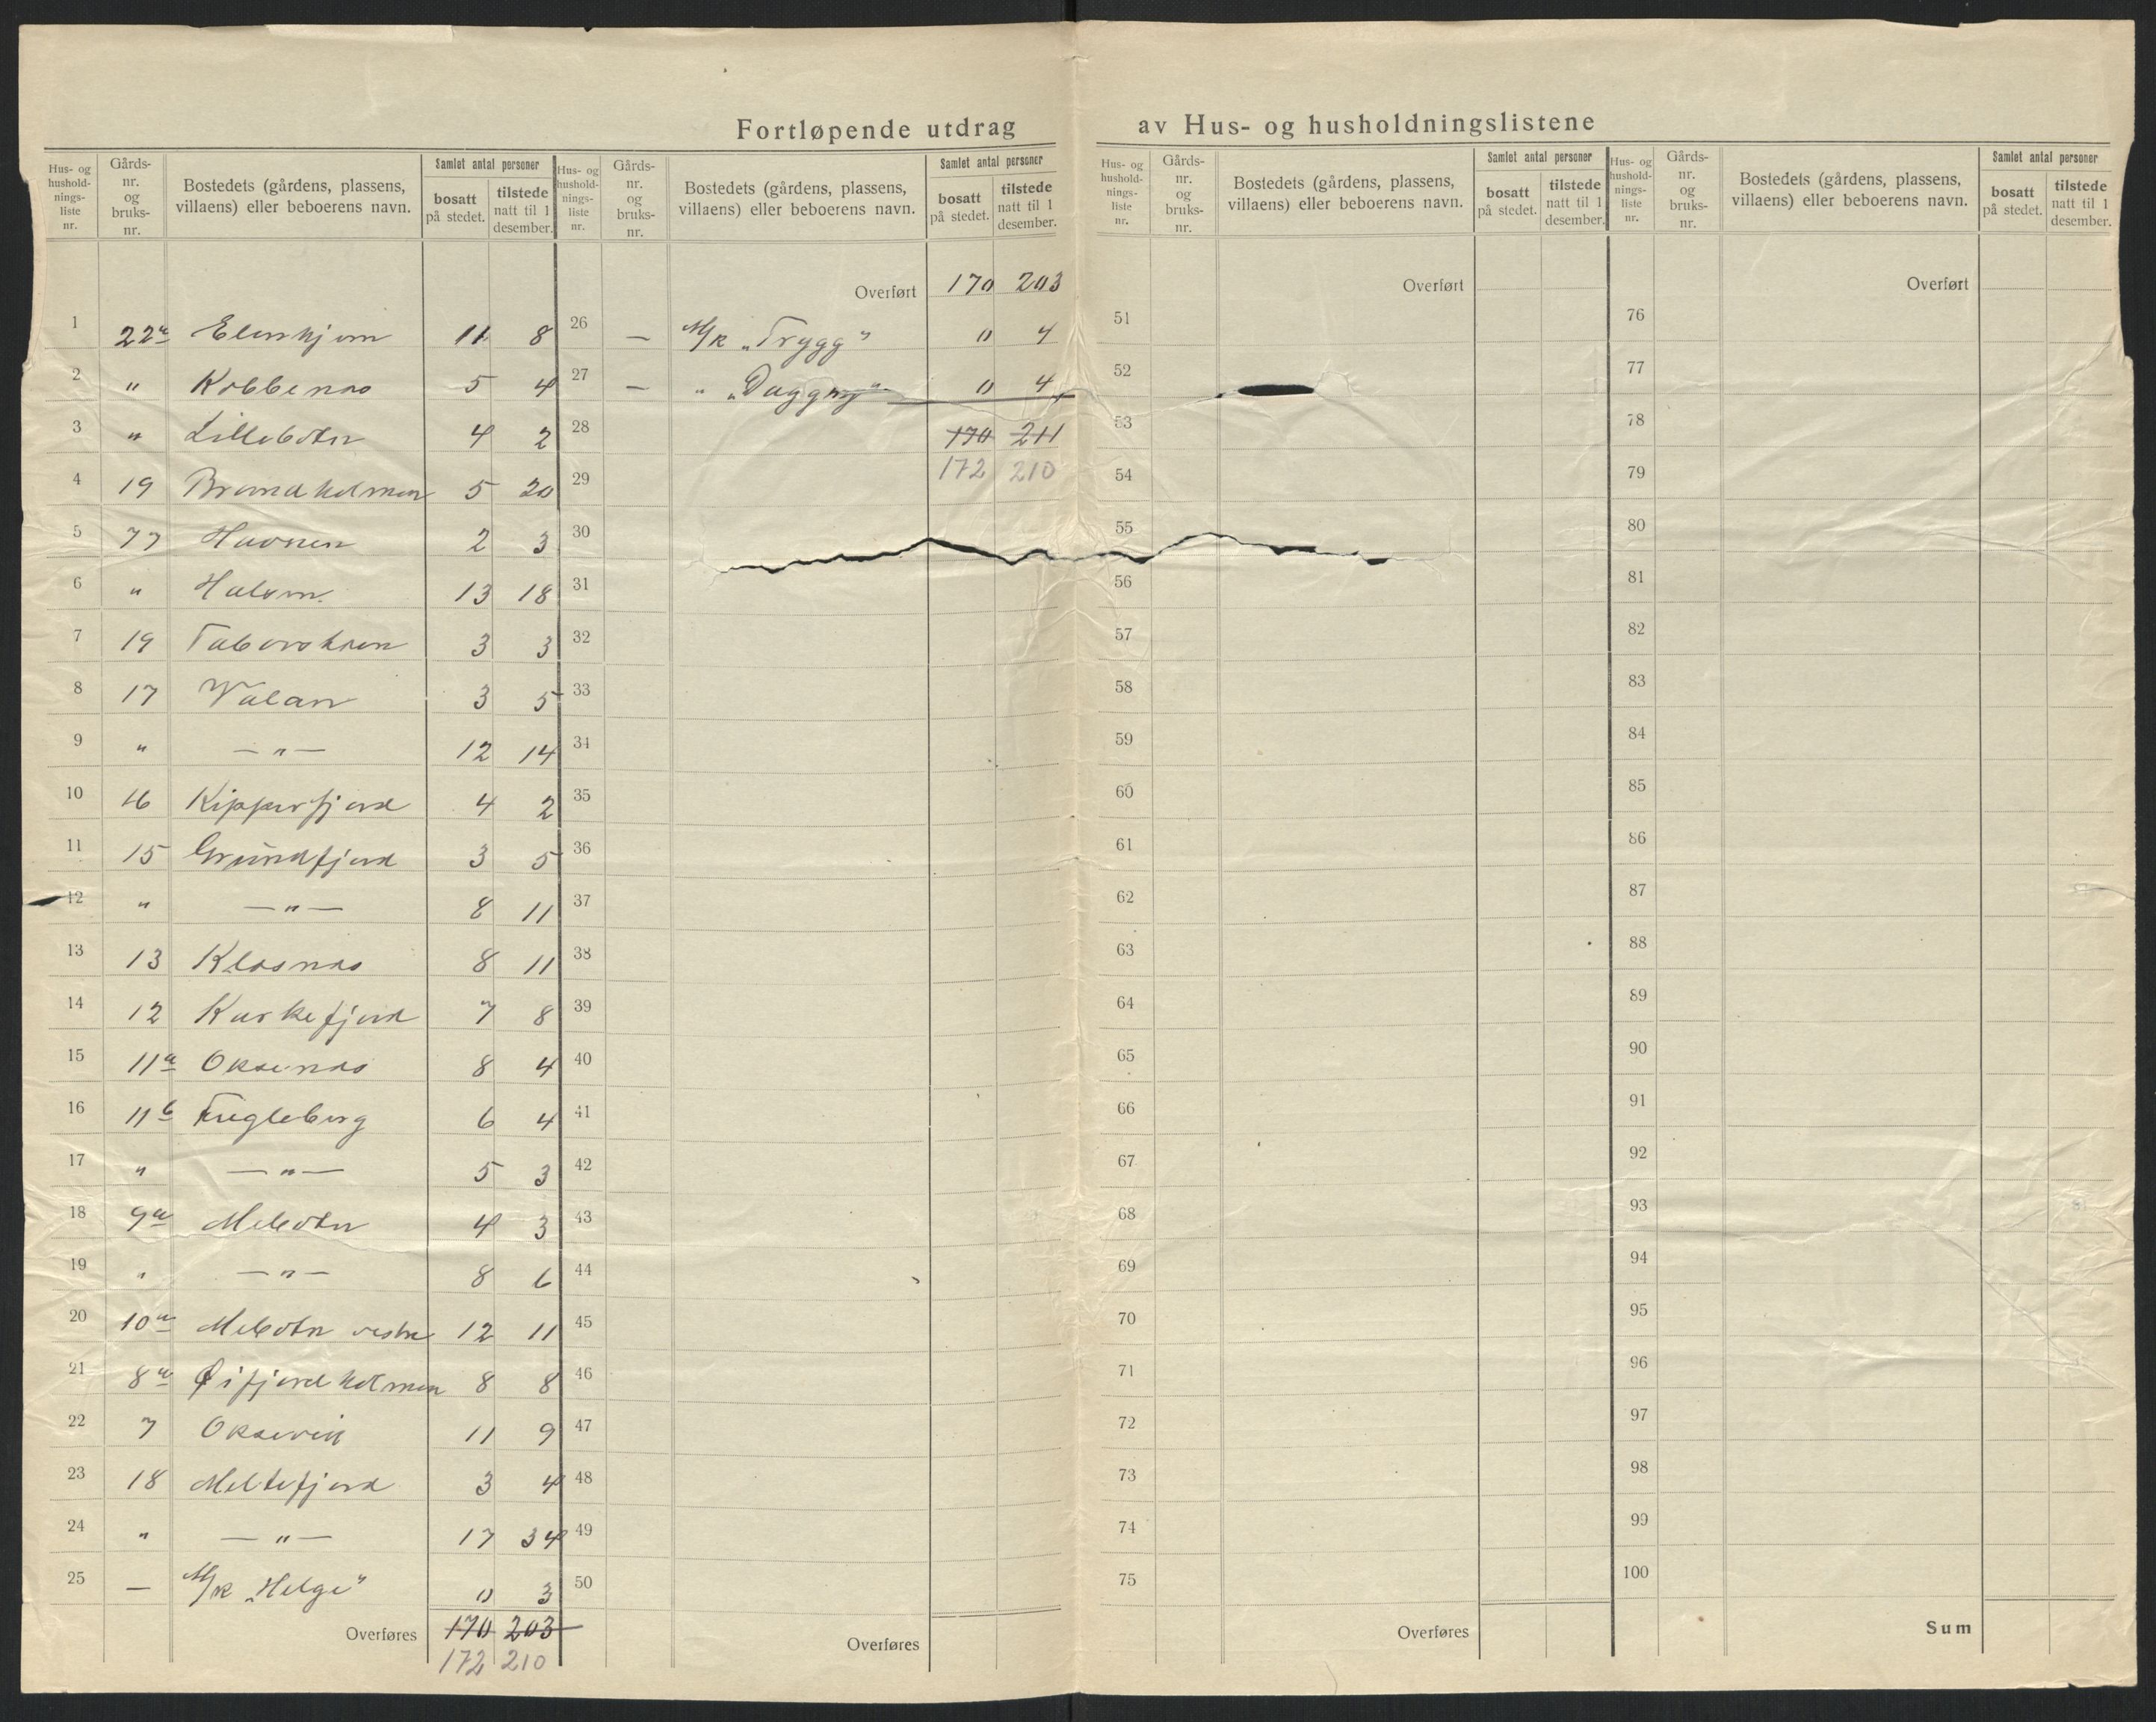 Fortløpende utdrag av Hus- og husholdningslistene
Hus- og hushold-nings-liste nr. Gårds-nr. og bruks-nr. Bostedets (gårdens, plassens, villaens) eller beboerens navn. Samlet antal personer bosatt på stedet. tilstede natt til 1 desember.
Hus- og hushold-nings-liste nr. Gårds-nr. og bruks-nr. Bostedets (gårdens, plassens, villaens) eller beboerens navn. Samlet antal personer bosatt på stedet. tilstede natt til 1 desember.
Hus- og hushold-nings-liste nr. Gårds-nr. og bruks-nr. Bostedets (gårdens, plassens, villaens) eller beboerens navn. Samlet antal personer bosatt på stedet. tilstede natt til 1 desember.
Hus- og hushold-nings-liste nr. Gårds-nr. og bruks-nr. Bostedets (gårdens, plassens, villaens) eller beboerens navn. Samlet antal personer bosatt på stedet. tilstede natt til 1 desember.
1 22a 11 8
2 " Kobbenes 5 4
3 " Lillebotn 4 2
4 19 Brandholmen 5 20
5 77 Havnen 2 3
6 " 13 18
7 19 3 3
8 17 Valan 3 5
9 " — " — 12 14
10 16 Kipperfjord 4 2
11 15 Grundfjord 3 5
12 " — " — 8 11
13 13 Klosnes 8 11
14 12 Karkefjord 7 8
15 11a Oksenes 8 4
16 11b Fugleberg 6 4
17 " — " — 5 3
18 9a Mebotn 4 3
19 " — " — 8 6
20 10a Mebotn vestre 12 11
21 8a Øifjordholmen 8 8
22 7 Oksevik 11 9
23 18 Meltefjord 3 4
24 " — " — 17 34
25 — M/k "Helge" 0 3
Overføres 170 203
172 210
Overført 170 203
26 — M/k "Trygg" 0 4
27 — " "Dagny" 0 4
28 170 211
29 172 210
30
31
32
33
34
35
36
37
38
39
40
41
42
43
44
45
46
47
48
49
50
Overføres
Overført
51
52
53
54
55
56
57
58
59
60
61
62
63
64
65
66
67
68
69
70
71
72
73
74
75
Overføres
Overført
76
77
78
79
80
81
82
83
84
85
86
87
88
89
90
91
92
93
94
95
96
97
98
99
100
Sum